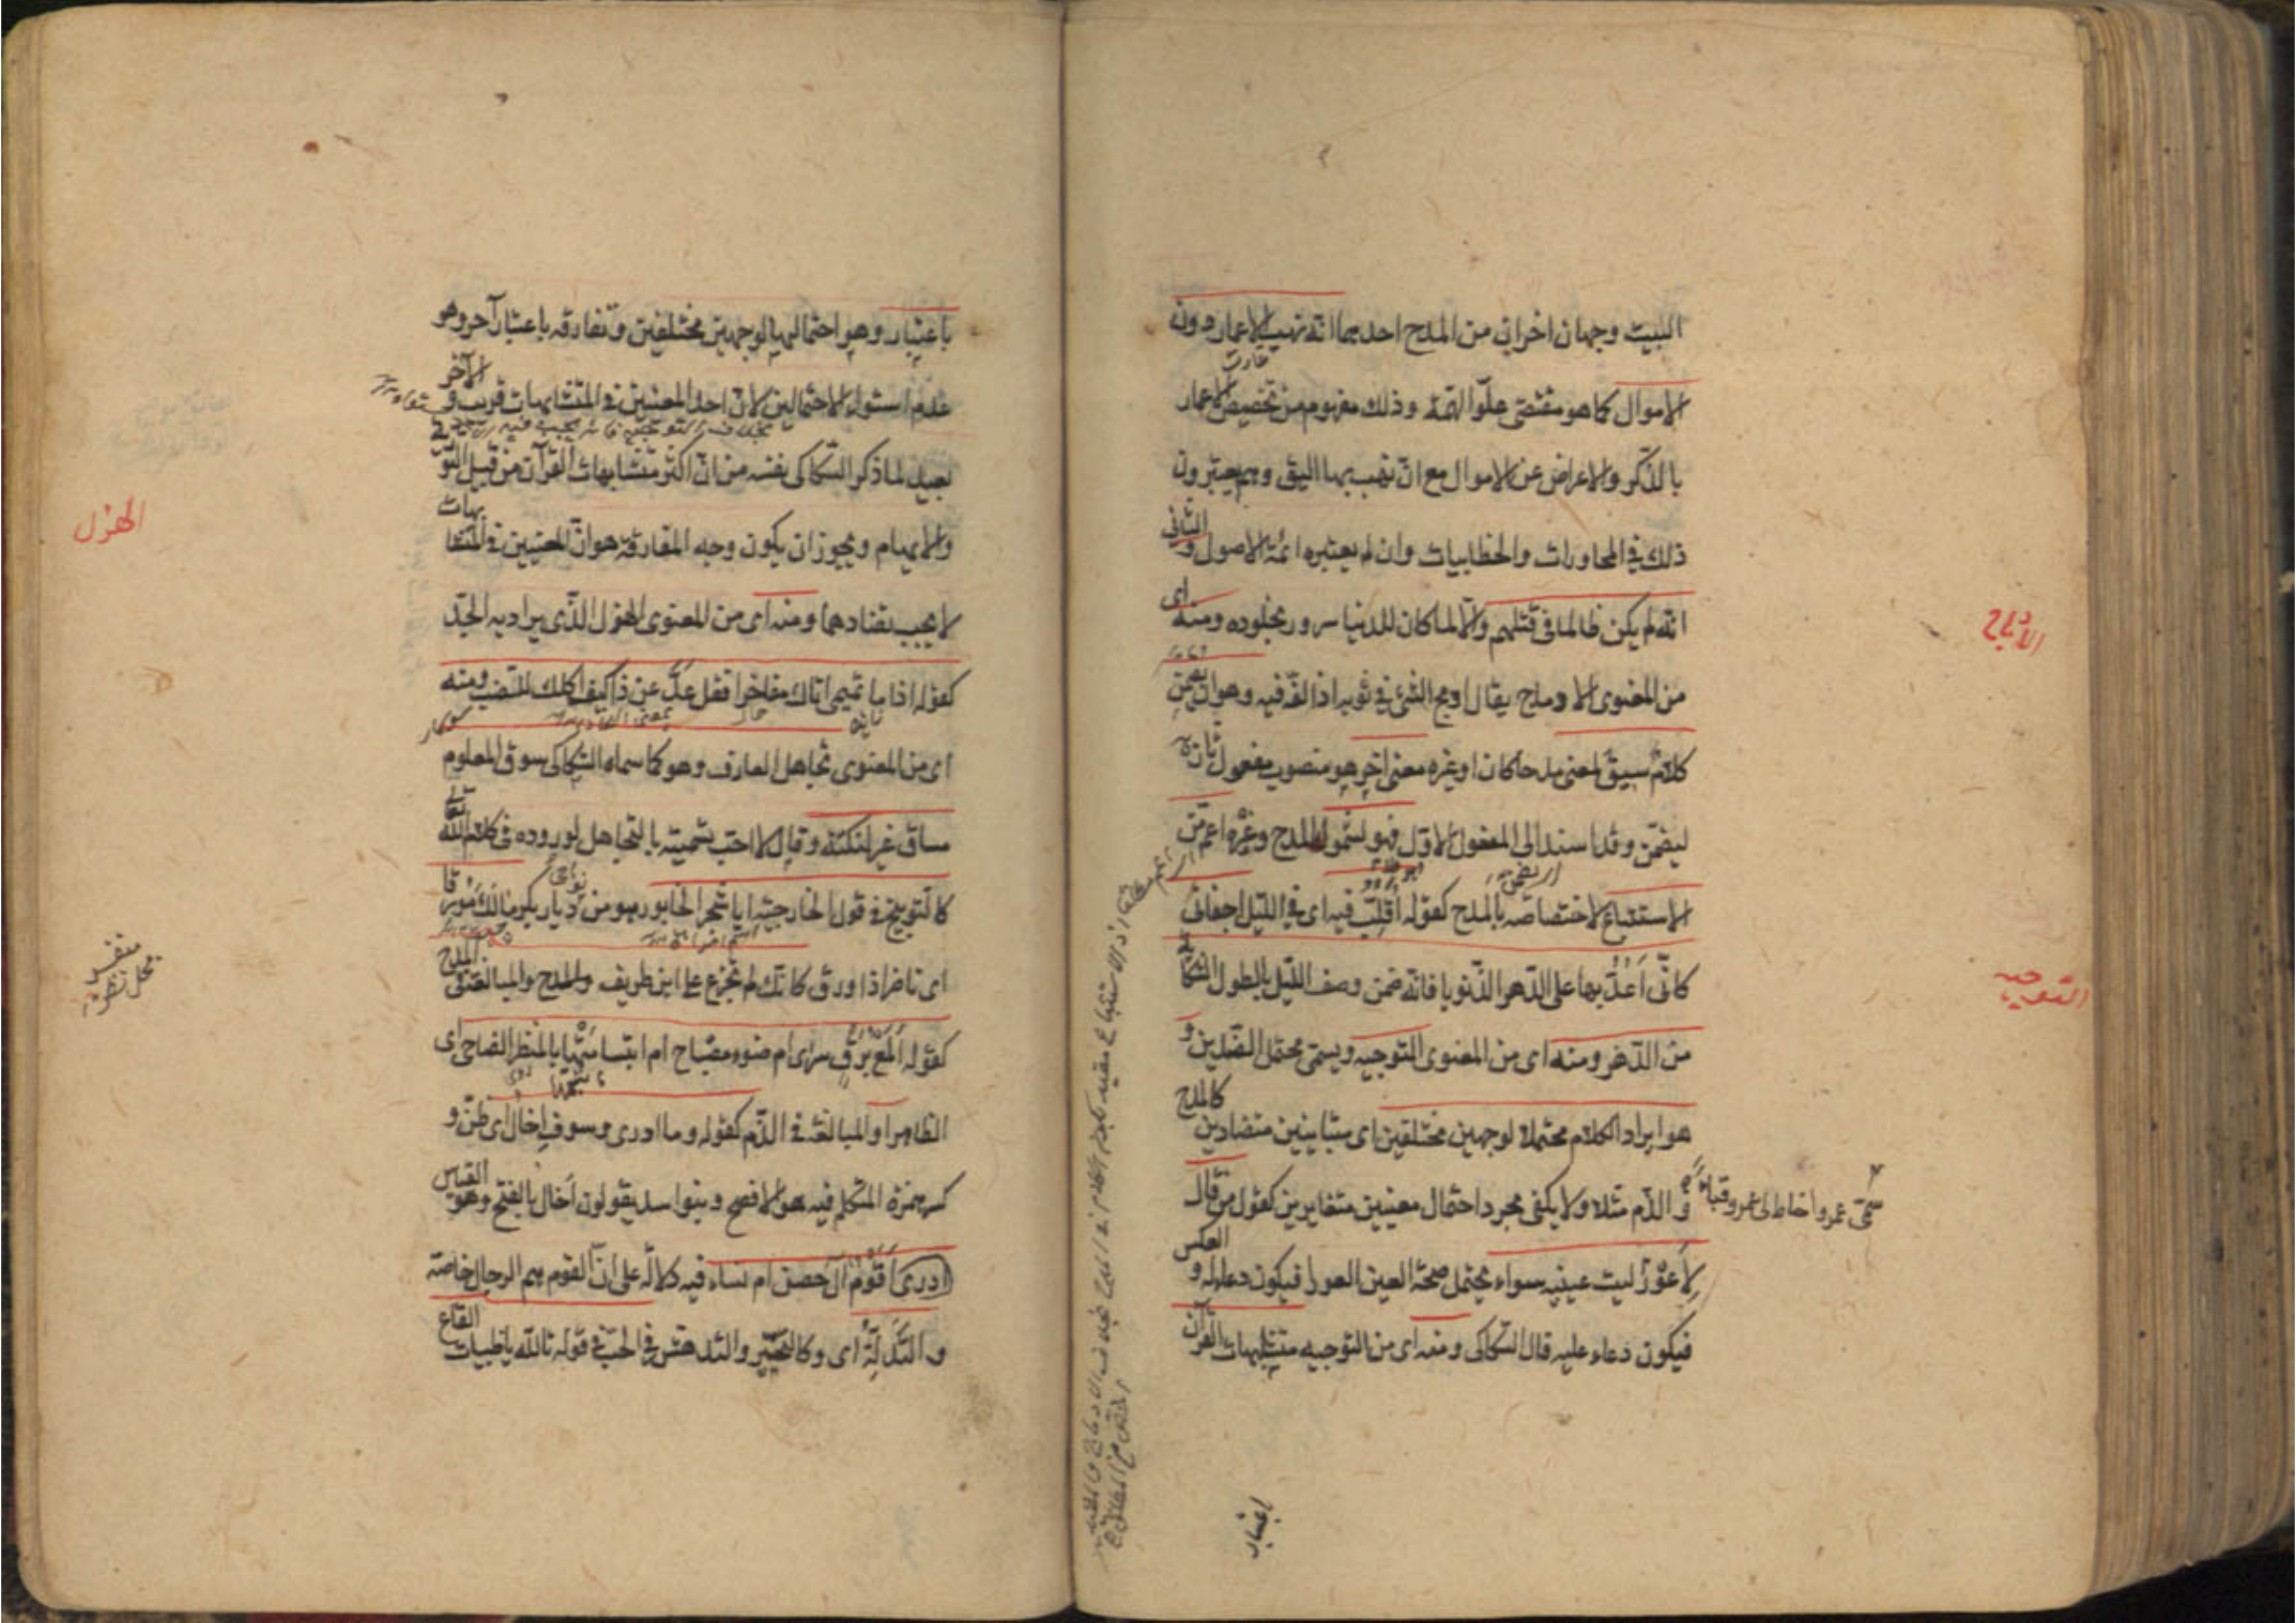 البيت وجهان اخران من المدح احدهما انه نهب الاعمار دون
الاموال كما هو مقتضى علوّ الهمّة وذلك مفهوم من تخصيص الاعمار
بالذّكر والاعراض عن الاموال مع انّ نهب بها اليق وهم يعتبرون
ذلك في المحاورات والخطابيات وان لم يعتبره ائمّة الاصول و الثانى
انّه لم يكن ظالما فى قتلهم والّا لما كان للدنيا سرور بخلوده ومنه اى
من المعنوى الادماج يقال ادمج الشئ في ثوبه اذا لفّه فيه وهو ان يضمّن
كلامٌ سيق لمعنى مدحا كان او غيره معنى اخر هو منصوب مفعول ثان
ليضمّن وقد اسند الى المفعول الاوّل فهو لشموله المدح وغيره اعمّ من
الاستتباع لاختصاصه بالمدح كقوله اقلّب فيه اى في الليل اجفانى
كانّى اعدّ بها على الدّهر الذّنوبا فانّه ضمن وصف الليل بالطول الشكاية
من الدّهر ومنه اى من المعنوى التوجيه ويسمّى محتمل الضّدين و
هو ايراد الكلام محتملا لوجهين مختلفين اى متباينين متضادين كالمدح
و الذّم مثلا ولا يكفى مجرد احتمال معنيين متغايرين كقول من قال
لاعور ليت عينيه سواء يحتمل صحّة العين العوراء فيكون دعاء له و العكس
فيكون دعاء عليه قال السّكاكى ومنه اى من التوجيه متشابهات القرآن
الادماج
التوجيه
خاط لى عمرو قباء
باعتبار
باعتبار وهو احتمالها لوجهين مختلفين وتفارقه باعتبار آخر وهو
عدم استواء الاحتمالين لانّ احد المعنيين في المتشابهات قريب و الآخر
بعيد لما ذكر السّكاكى نفسه من انّ اكثر متشابهات القرآن من قبيل التورية
والايهام ويجوز ان يكون وجه المفارقة هو انّ المعنيين في المتشابهات
لا يجب تضادهما ومنه اى من المعنوى الهزل الّذى يراد به الجدّ
كقوله اذا ما تميمى اتاك مفاخرا فقل عدّ عن ذا كيف اكلك للضب ومنه
اى من المعنوى تجاهل العارف وهو كما سماه السّكاكى سوق المعلوم
مساق غيره لنكتة وقال لا احب تسميته بالتجاهل لوروده فى كلام الله تعالى
كالتوبيخ في قول الخارجيّة ايا شجر الخابور هو من ديار بكر مالك مورقا
اى ناضرا ذا ورق كانّك لم تجزع على ابن طريف والمبالغة في المدح
كقوله المع برق سرى ام ضوء مصباح ام ابتسامتها بالمنظر الضاحى اى
الظاهر او المبالغة في الذّم كقوله وما ادرى وسوف إخال اى ظنّ و
كسر همزة المتكلم فيه هو الافصح وبنوا سد يقولون أخال بالفتح وهو القياس
ادرى اقوم آل حصن ام نساء فيه دلالة على انّ القوم هم الرجال خاصّة
و التدلّه اى وكالتحيّر والتدهّش في الحبّ في قوله تالله يا ظبيات القاع
الهزل
محل نظر